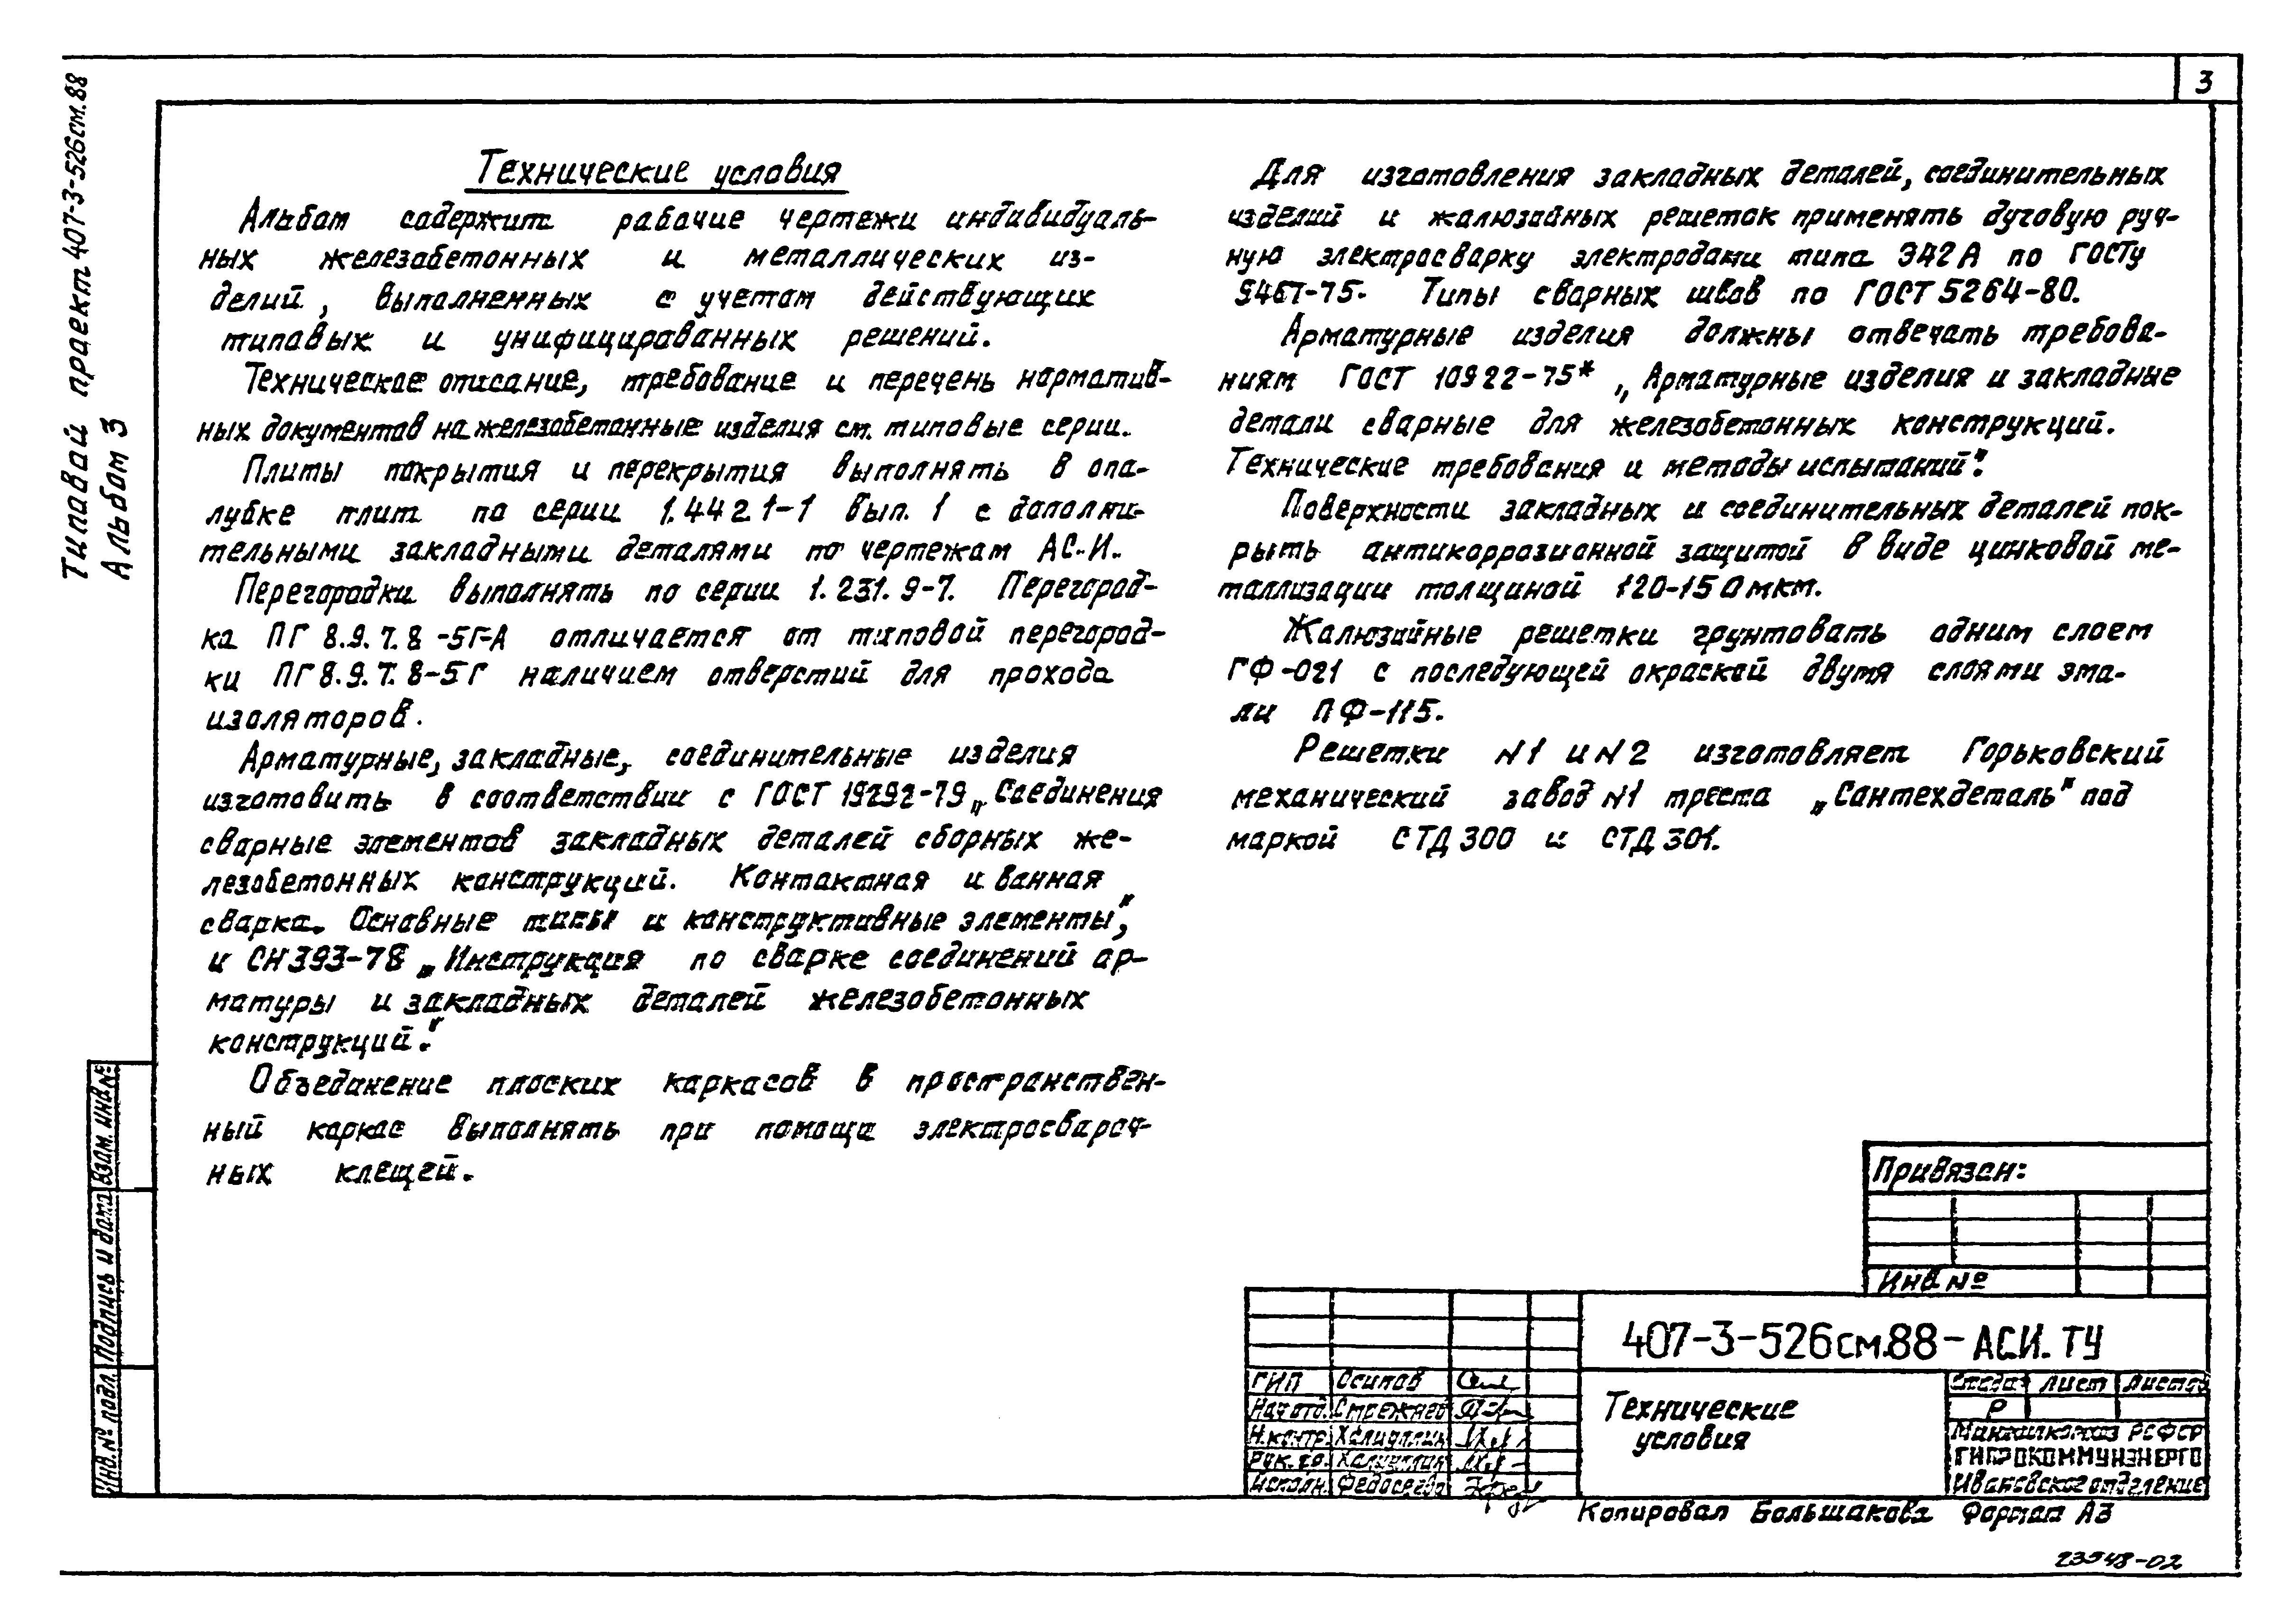 3
Типовой проект 407-3-526см.88
Альбом 3
Технические условия
Альбом содержит рабочие чертежи индивидуаль-
ных железобетонных и металлических из-
делий, выполненных с учетом действующих
типовых и унифицированных решений.
Техническое описание, требование и перечень норматив-
ных документов на железобетонные изделия см. типовые серии.
Плиты покрытия и перекрытия выполнять в опа-
лубке плит по серии 1.442.1-1 вып. 1 с дополни-
тельными закладными деталями по чертежам АС.И.
Перегородки выполнять по серии 1.231.9-7. Перегород-
ка ПГ 8.9.7.8-5Г-А отличается от типовой перегород-
ки ПГ 8.9.7.8-5Г наличием отверстий для прохода
изоляторов.
Арматурные, закладные, соединительные изделия
изготовить в соответствии с ГОСТ 19292-79 „Соединения
сварные элементов закладных деталей сборных же-
лезобетонных конструкций. Контактная и ванная
сварка. Основные типы и конструктивные элементы",
и СН 393-78 „Инструкция по сварке соединений ар-
матуры и закладных деталей железобетонных
конструкций".
Объединение плоских каркасов в пространствен-
ный каркас выполнять при помощи электросвароч-
ных клещей.
Для изготовления закладных деталей, соединительных
изделий и жалюзийных решеток применять дуговую руч-
ную электросварку электродами типа Э42А по ГОСТу
9467-75. Типы сварных швов по ГОСТ 5264-80.
Арматурные изделия должны отвечать требова-
ниям ГОСТ 10922-75* „Арматурные изделия и закладные
детали сварные для железобетонных конструкций.
Технические требования и методы испытаний".
Поверхности закладных и соединительных деталей пок-
рыть антикоррозионной защитой в виде цинковой ме-
таллизации толщиной 120-150мкм.
Жалюзийные решетки грунтовать одним слоем
ГФ-021 с последующей окраской двумя слоями эма-
ли ПФ-115.
Решетки N1 и N2 изготовляет Горьковский
механический завод N1 треста „Сантехдеталь" под
маркой СТД 300 и СТД 301.
Взам. инв.№
Подпись и дата
Инв.№ подл.
Привязан:
Инв №
407-3-526см.88-АС.И.ТУ
ГИП Осипов
Нач.отд. Стрежнев
Н.контр. Халиуллин
Рук.гр. Халиуллин
Исполн. Федосеева
Технические
условия
Стадия Лист Листов
Р
Минжилкомхоз РСФСР
ГИПРОКОММУНЭНЕРГО
Ивановское отделение
Копировал Большакова Формат А3
23548-02